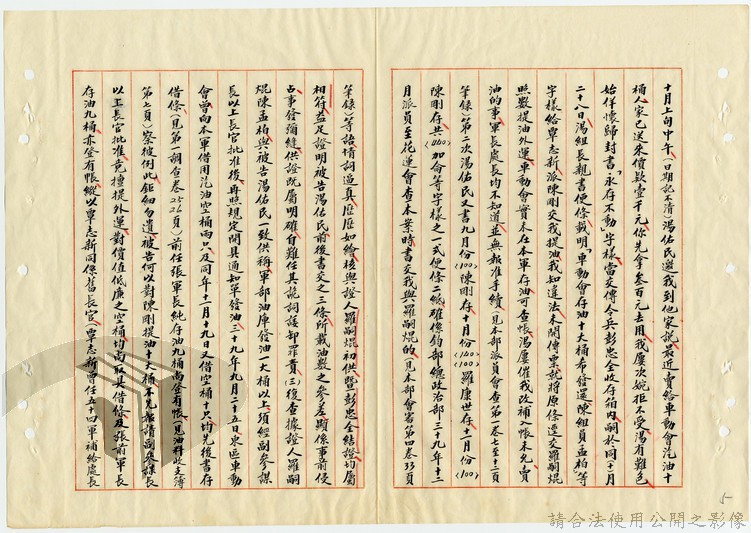 十月上旬中午(日期記不清)湯佑民邀我到他家說最近賣給車動會汽油十
桶人家已送來價款壹千元你先拿叁百元去用我屢次婉拒不受湯有難色
始佯懷歸封書「永存不動」字樣當交傳令兵彭忠全收存箱內嗣於同(十)月
二十八日湯組長親書便條載明「車動會存油十大桶希發還」陳組員孟柏等
字樣給覃志新派陳剛交我提油我知違法未開傳票就將原條逕交羅嗣焜
照數提油外運車動會實未在本軍存油可查帳湯屢催我改補入帳未允賣
油的事軍長處長均不知道並無報准手續(見本部派員會查第一卷七至十三頁
筆錄)第二次湯佑民又書九月份(100)陳剛存十月份(140)(100)羅康世存十一月份(100)
陳剛存共(440)加侖等字樣之一式便條二紙確係鈞部總政治部三十九年十二
月派員至花運會查本案時書交我與羅嗣焜的(見本部會審第四卷33頁
筆錄)等語情詞逼真歷歷如繪核與證人羅嗣焜初供暨彭忠全結證均屬
相符益足證明被告湯佑民前後書交之三條所載油數之參差顯係事前侵
占事發彌縫供證既屬明確自難任其詭詞諉卸罪責(三)復查據證人羅嗣
焜陳孟柏與被告湯佑民一致供稱軍部油庫發油一大桶以上須經副參謀
長以上長官批准後再照規定開具通知單發油三十九年九月二十五日東區車動
會曾向本軍借用汽油空桶兩只及同年十一月十九日又借空桶十只均先後書存
借條(見第一詞查卷25 26頁)前任張軍長純存油九桶尚登有帳(見油料收支簿
第七頁)察核例此鉅細勿遺被告何以對陳剛提油十大桶不先報請副參謀長
以上長官批准竟擅提外運對價值低廉之空桶均尚取具借條及張前軍長
存油九桶亦登有帳縱以覃志新同係舊長官(覃志新曾任五十四軍補給處長
5
請合法使用公開之影像